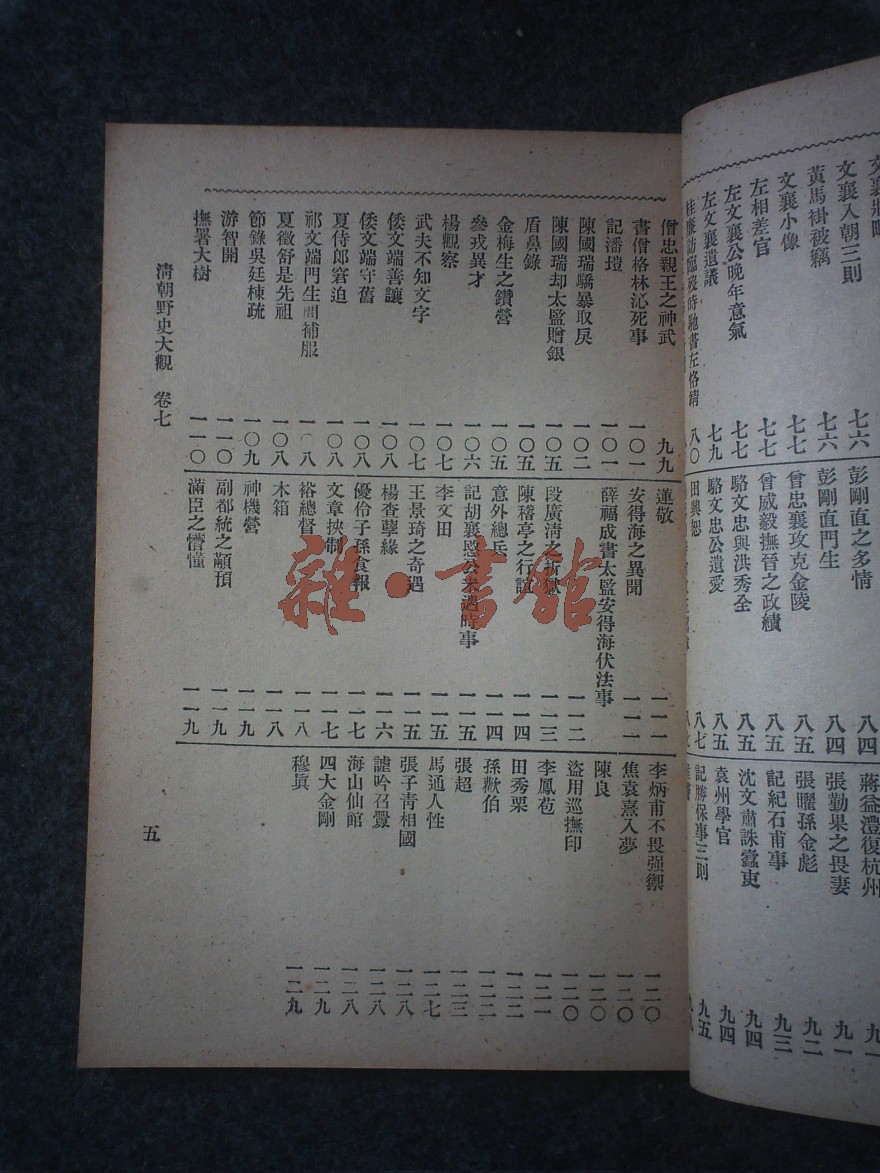 文襄入朝三則 七六
黃馬褂被竊 七六
文襄小像 七七
左相差官 七七
左文襄公晚年意氣 七七
左文襄遺議 七九
臨歿時馳書左恪靖 八〇
彭剛直之多情 八四
彭剛直門生 八四
曾忠襄攻克金陵 八五
曾威毅撫晉之政績 八五
駱文忠與洪秀全 八五
駱文忠公遺愛 八五
田興恕 八七
蔣益澧復杭州 九一
張勤果之畏妻 九一
張曜孫金彪 九二
記紀石甫事 九三
沈文肅誅蠹吏 九四
袁州學官 九四
記勝保事三則 九五
僧忠親王之神武 九九
書僧格林沁死事 一〇一
記潘塏 一〇一
陳國瑞驕暴取戾 一〇二
陳國瑞却太監贈銀 一〇五
盾鼻錄 一〇五
金梅生之鑽營 一〇五
參戎異才 一〇六
楊觀察 一〇七
武夫不知文字 一〇七
倭文端善讓 一〇八
倭文端守舊 一〇八
夏侍郎窘迫 一〇八
祁文端門生開補服 一〇八
夏徵舒是先祖 一〇八
節錄吳廷棟疏 一〇九
游智開 一一〇
撫署大樹 一一〇
蓮敬 一一一
安得海之異聞 一一一
薛福成書太監安得海伏法事 一一二
段廣清之折獄 一一三
陳稽亭之行誼 一一四
意外總兵 一一四
記胡襄愍公未遇時事 一一五
李文田 一一五
王景琦之奇遇 一一五
楊查孽緣 一一六
優伶子孫食報 一一七
文章挾制 一一七
裕總督 一一八
木箱 一一八
神機營 一一九
副都統之顢頇 一一九
滿臣之懵懂 一一九
李炳甫不畏强禦 一二〇
焦袁熹入夢 一二〇
陳良 一二〇
盜用巡撫印 一二〇
李鳳苞 一二一
田秀栗 一二二
孫歗伯 一二二
張超 一二三
馬通人性 一二七
張子青相國 一二八
謔吟召釁 一二八
海山仙館 一二八
四大金剛 一二九
穆真 一二九
清朝野史大觀 卷七 五
雜·書館